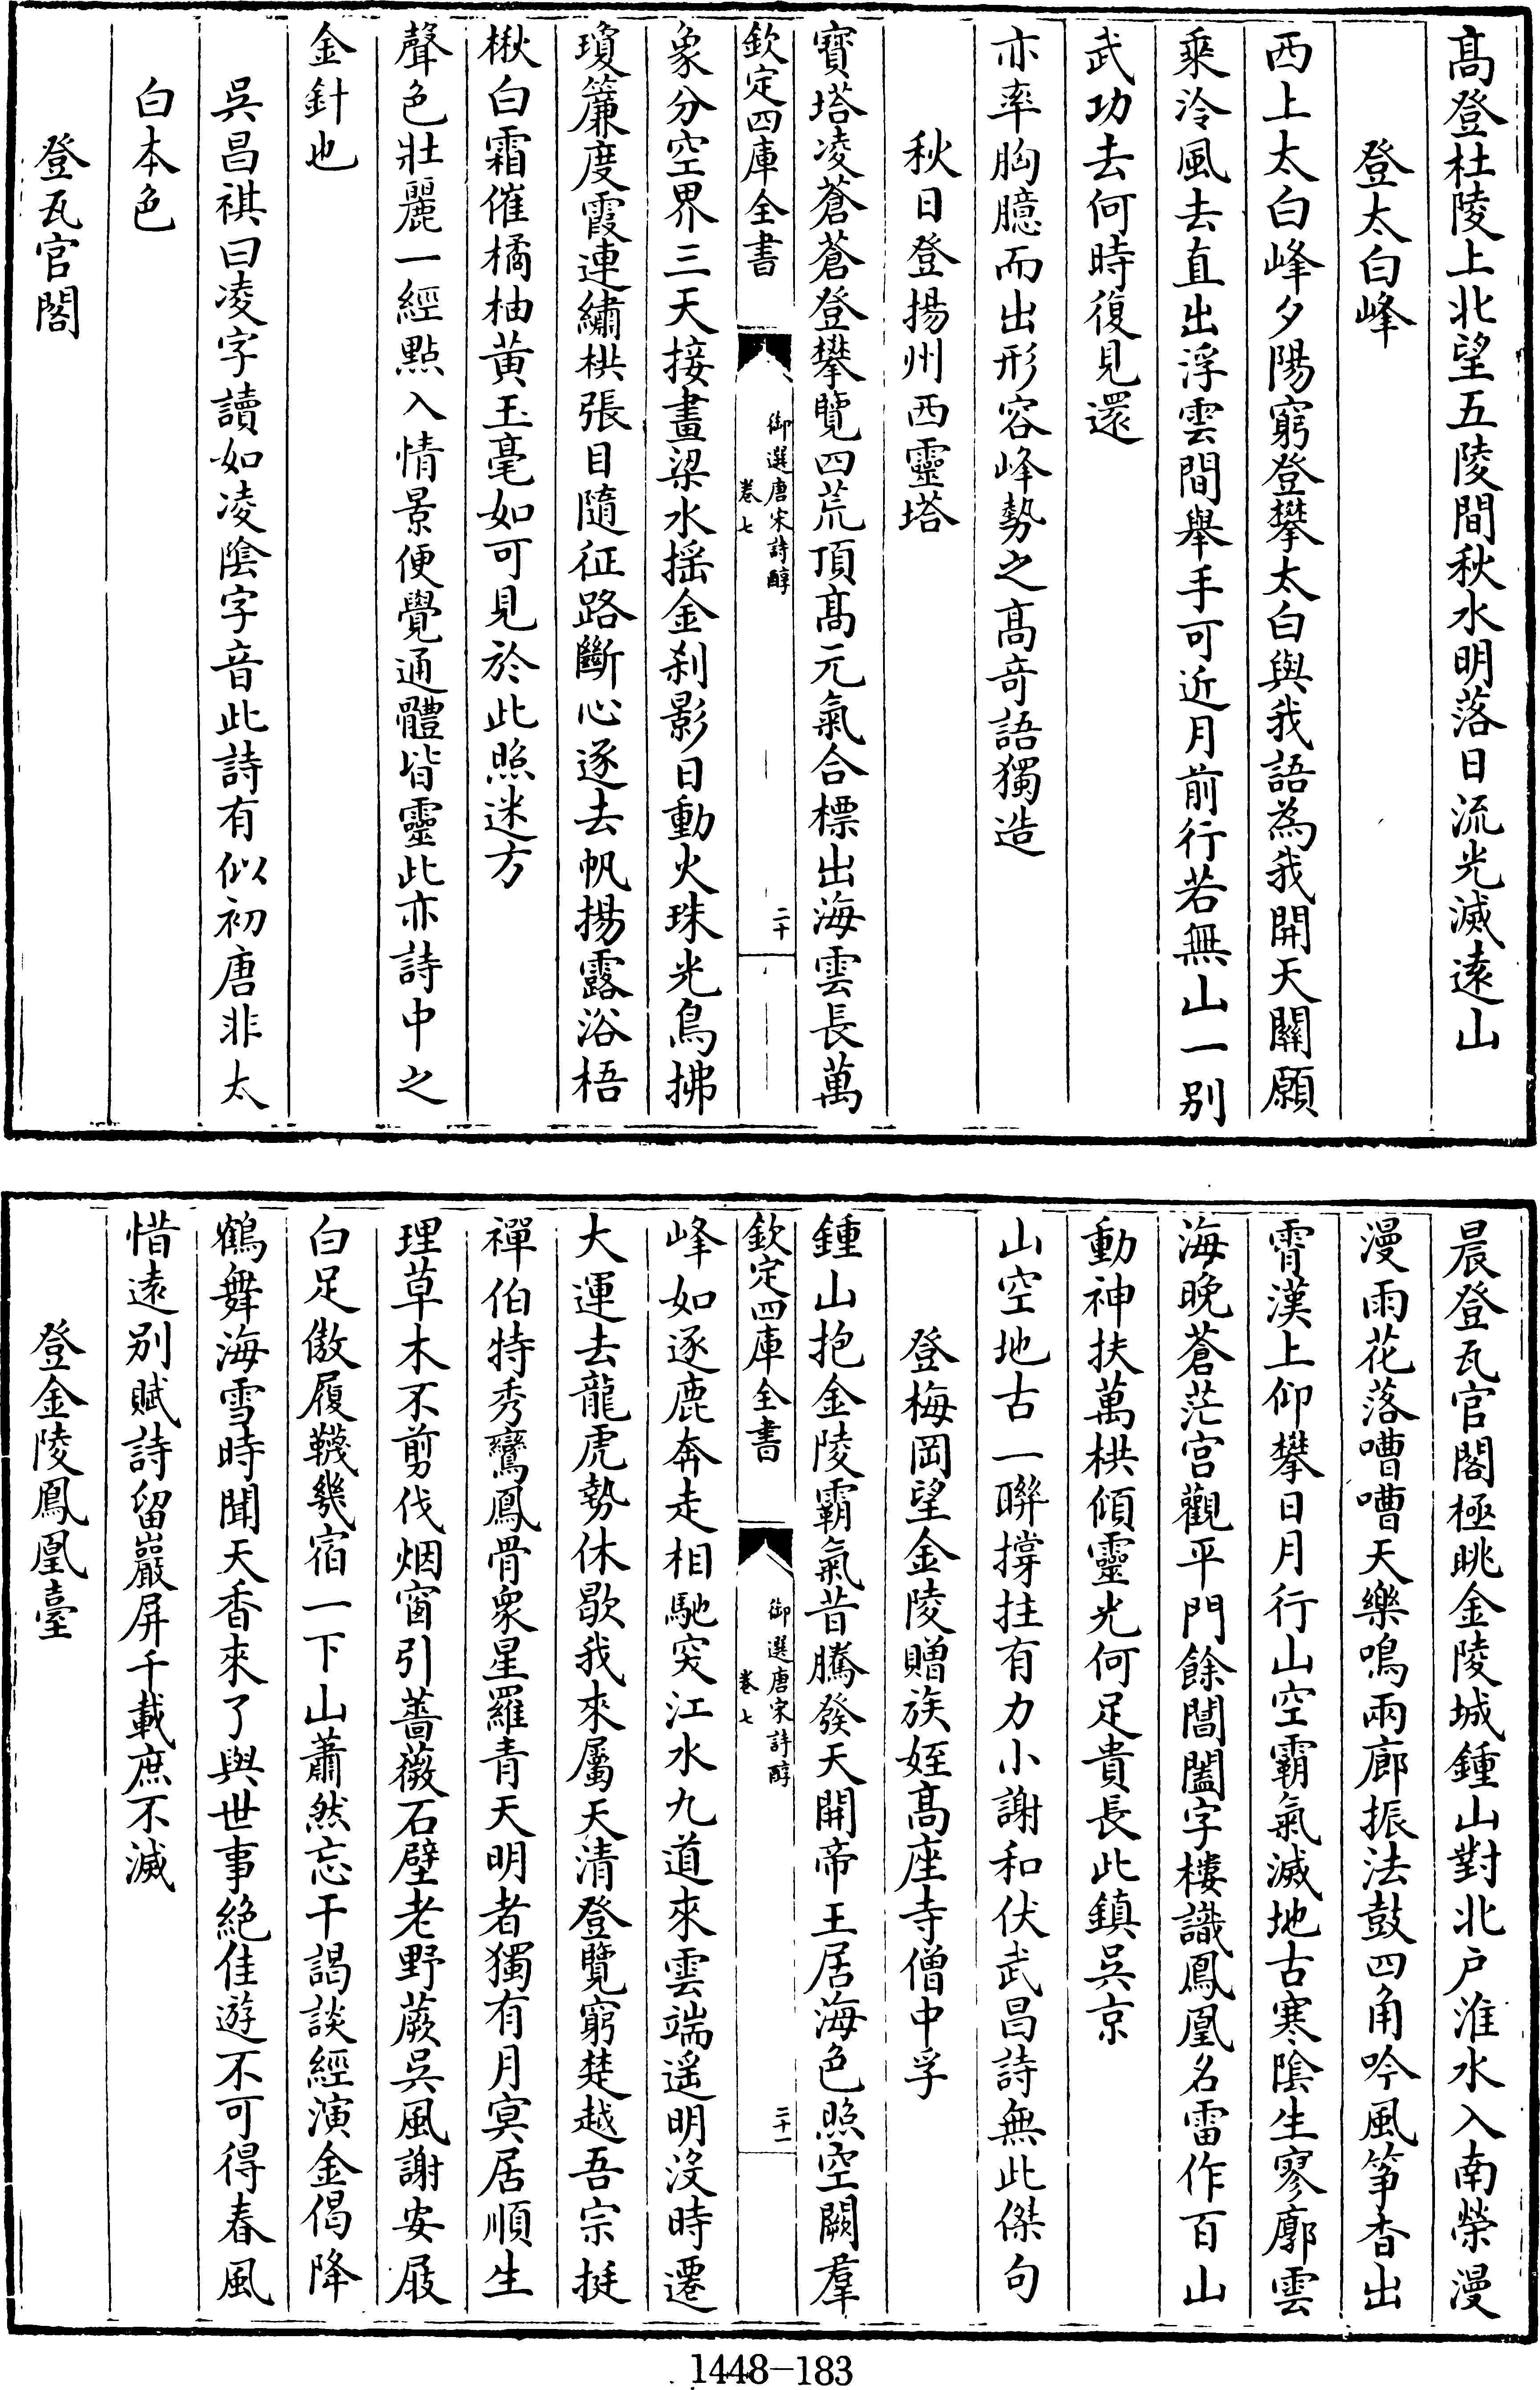 髙登杜陵上北望五陵間秋水明落日流光滅遠山
登太白峰
西上太白峰夕陽窮登攀太白與我語為我開天關願
乘泠風去直出浮雲間舉手可近月前行若無山一别
武功去何時復見還
亦率胸臆而出形容峰勢之髙竒語獨造
秋日登揚州西靈塔
寶塔凌蒼蒼登攀覽四荒頂髙元氣合標出海雲長萬
欽定四庫全書
御選唐宋詩醇
卷七
二十
象分空界三天接畫梁水揺金刹影日動火珠光鳥拂
瓊簾度霞連繡栱張目隨征路斷心逐去帆揚露浴梧
楸白霜催橘柚黄玉毫如可見於此照迷方
聲色壯麗一經點入情景便覺通體皆靈此亦詩中之
金針也
吳昌祺曰凌字讀如凌陰字音此詩有似初唐非太
白本色
登瓦官閣
晨登瓦官閣極眺金陵城鍾山對北户淮水入南榮漫
漫雨花落嘈嘈天樂鳴兩廊振法鼓四角吟風筝杳出
霄漢上仰攀日月行山空霸氣滅地古寒陰生寥廓雲
海晚蒼茫宫觀平門餘閶闔字樓識鳳凰名雷作百山
動神扶萬栱傾靈光何足貴長此鎮吳京
山空地古一聯撐拄有力小謝和伏武昌詩無此傑句
登梅岡望金陵贈族姪髙座寺僧中孚
鍾山抱金陵霸氣昔騰發天開帝王居海色照空闕羣
欽定四庫全書
御選唐宋詩醇
卷七
二十一
峰如逐鹿奔走相馳突江水九道來雲端遥明没時遷
大運去龍虎勢休歇我來屬天清登覽窮楚越吾宗挺
禪伯特秀鸞鳳骨衆星羅青天明者獨有月冥居順生
理草木不剪伐烟窗引薔薇石壁老野蕨吳風謝安屐
白足傲履韈幾宿一下山蕭然忘干謁談經演金偈降
鶴舞海雪時聞天香來了與世事絶佳遊不可得春風
惜遠别賦詩留巖屏千載庶不滅
登金陵鳳凰臺
1448-183